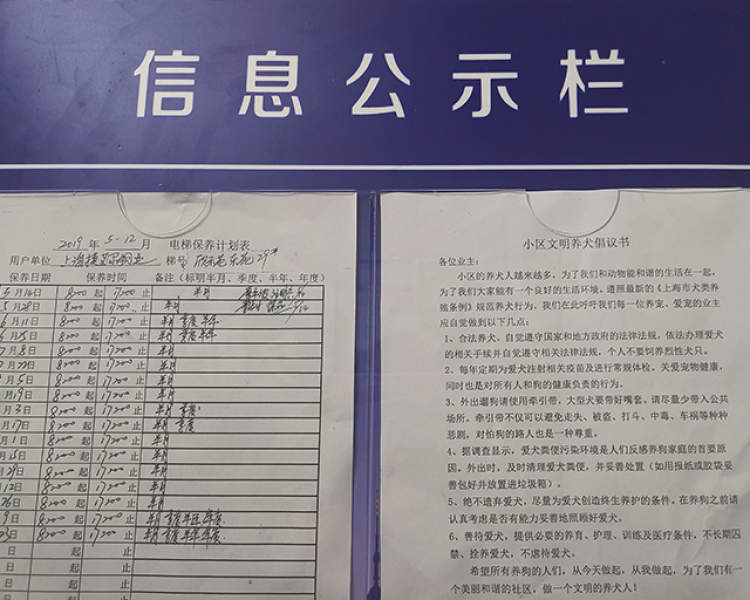 信息公示栏
2019年 5-12月 电梯保养计划表
用户单位 上海 梯号 29#
保养日期 保养时间 备注（标明半月、季度、半年、年度）
5月14日 8:00起 17:00止 半月
月28日 8:00起 17:00止 半月
6月11日 8:00起 17:00止 半月 季度 半年
6月25日 8:00起 17:00止 半月 季度 半年
7月8日 8:00起 17:00止 半月
7月22日 8:00起 17:00止 半月
月5日 8:00起 17:00止 半月
月19日 8:00起 17:00止 半月
月3日 8:00起 17:00止 半月 季度
月17日 8:00起 17:00止 半月 季度
月1日 8:00起 17:00止 半月
月15日 8:00起 17:00止 半月
月29日 8:00起 17:00止 半月
月12日 8:00起 17:00止 半月
月26日 8:00起 17:00止 半月
9日 8:00起 17:00止 半月 季度 半年 年度
23日 8:00起 17:00止 半月 季度 半年 年度
日 起 止
日 起 止
日 起 止
日 起 止
小区文明养犬倡议书
各位业主：
小区的养犬人越来越多，为了我们和动物能和谐的生活在一起，
为了我们大家能有一个良好的生活环境。遵照最新的《上海市犬类养
殖条例》规范养犬行为，我们在此呼吁我们每一位养宠、爱宠的业主
应自觉做到以下几点：
1、合法养犬，自觉遵守国家和地方政府的法律法规，依法办理爱犬
的相关手续并自觉遵守相关法律法规，个人不要饲养烈性犬只。
2、每年定期为爱犬注射相关疫苗及进行常规体检。关爱宠物健康，
同时也是对所有人和狗的健康负责的行为。
3、外出遛狗请使用牵引带，大型犬要带好嘴套。请尽量少带入公共
场所。牵引带不仅可以避免走失、被盗、打斗、中毒、车祸等种种
悲剧，对怕狗的路人也是一种尊重。
4、据调查显示，爱犬粪便污染环境是人们反感养狗家庭的首要原
因。外出时，及时清理爱犬粪便，并妥善处置（如用报纸或胶袋妥
善包好并放置进垃圾箱）。
5、绝不遗弃爱犬，尽量为爱犬创造终生养护的条件。在养狗之前请
认真考虑是否有能力妥善地照顾好爱犬。
6、善待爱犬，提供必要的养育、护理、训练及医疗条件，不长期囚
禁、拴养爱犬，不虐待爱犬。
希望所有养狗的人们，从今天做起，从我做起，为了我们有一
个美丽和谐的社区，做一个文明的养犬人！